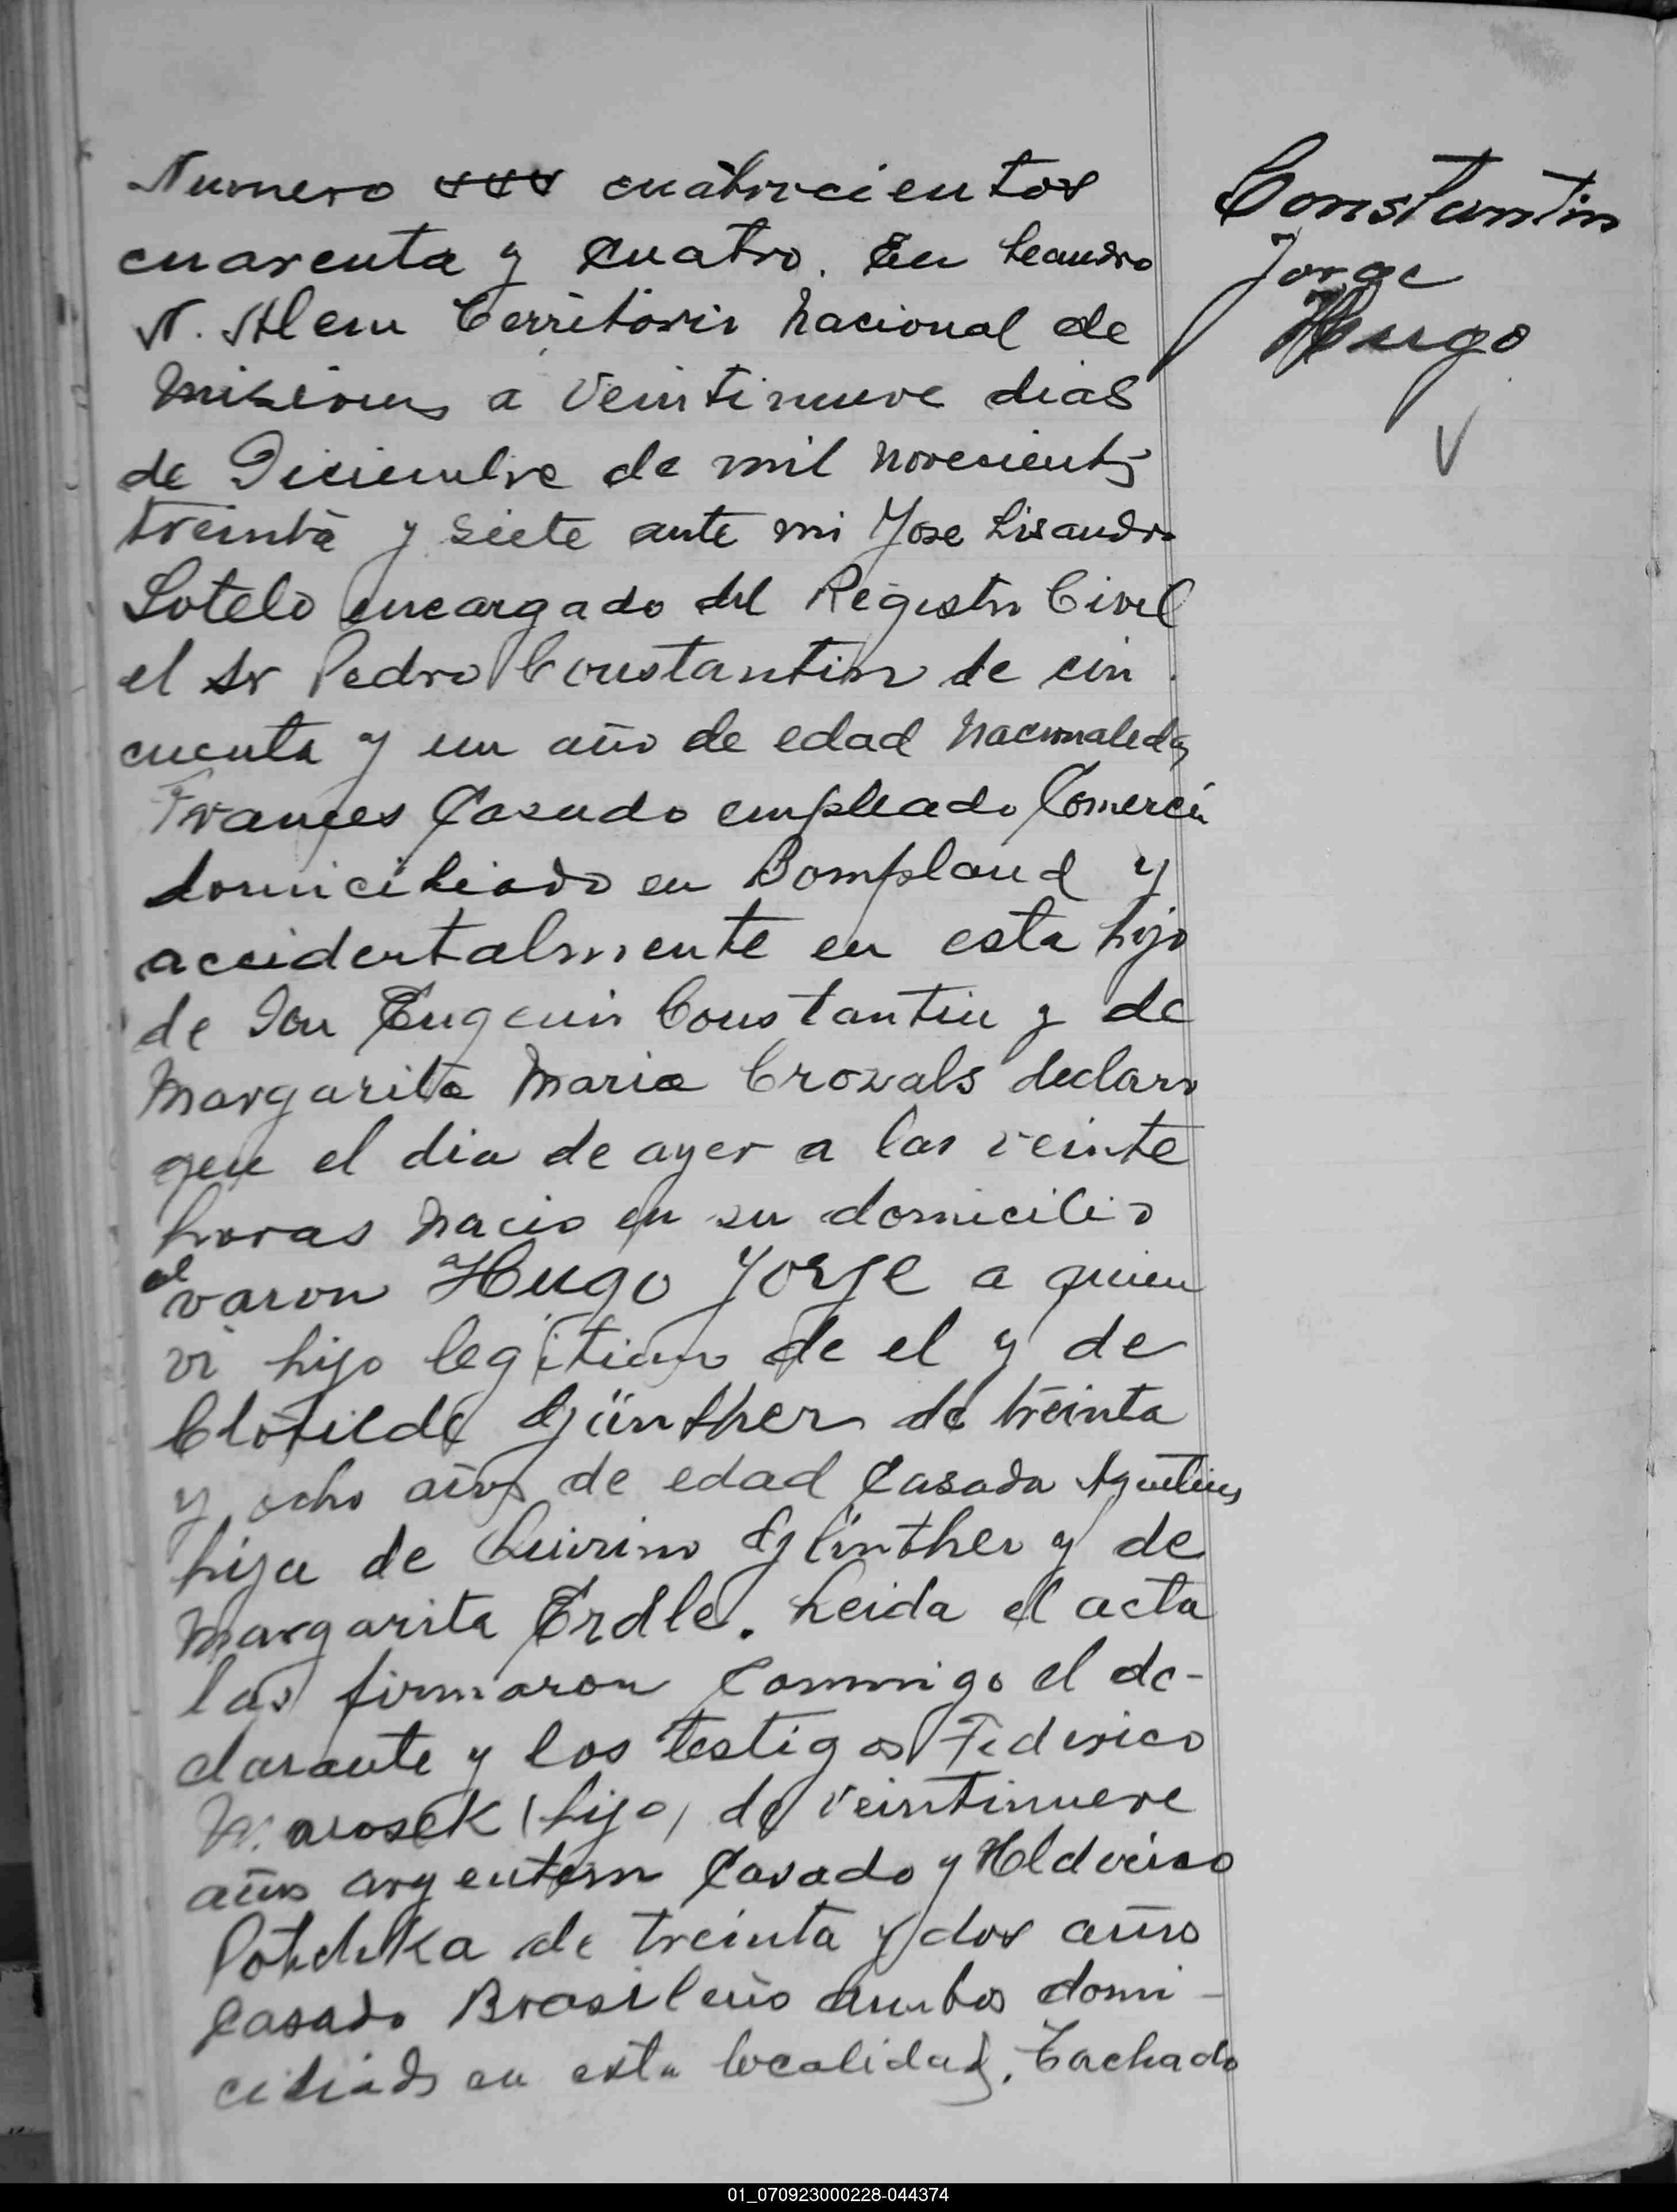 Numero xxx cuatrocientos
cuarenta y cuatro. En Leandro
N. Alem Territorio Nacional de
Misiones a veintinueve dias
de Diciembre de mil novecientos
treinta y siete ante mi Jose Lisandro
Sotelo encargado del Registro Civil
el Sr Pedro Constantin de cin
cuenta y un año de edad Nacionalidad
Frances Casado empleado Comercio
domiciliado en Bompland y
accidentalmente en esta hijo
de Don Eugenio Constantin y de
Margarita Maria Crozals declaro
que el dia de ayer a las veinte
horas nacio en su domicilio
el varon Hugo Jorge a quien
vi hijo legitimo de el y de
Clotilde Günther de treinta
y ocho años de edad Casada Argentina
hija de Quirino Günther y de
Margarita Erdle. Leida el acta
las firmaron conmigo el de-
clarante y los testigos Federico
(hijo) de veintinueve
años argentino Casado y
de treinta y dos años
Casado Brasileño ambos domi-
ciliados en esta localidad. Tachado
Constantin
Jorge
Hugo
01_070923000228-044374